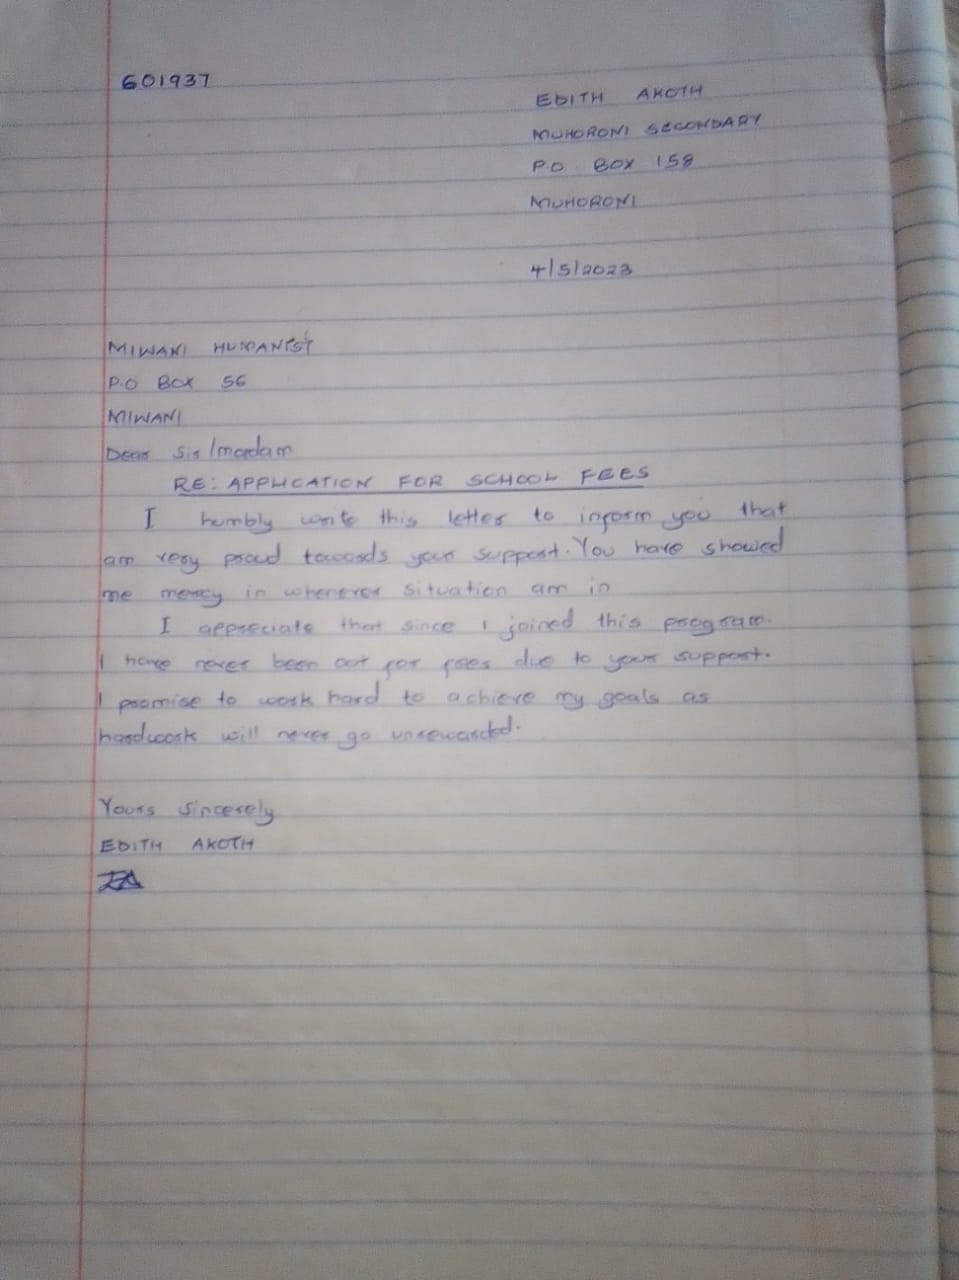 601937
EDITH AKOTH
MUHORONI SECONDARY
P.O BOX 158
MUHORONI
4/5/2023
MIWANI HUMANIST
P.O BOX 56
MIWANI
Dear Sir/madam
RE: APPLICATION FOR SCHOOL FEES
I humbly write this letter to inform you that
am very proud towards your support. You have showed
me mercy in whenever situation am in
I appreciate that since I joined this program.
I have never been out for fees due to your support.
I promise to work hard to achieve my goals as
hardwork will never go unrewarded.
Yours Sincerely
EDITH AKOTH
EA